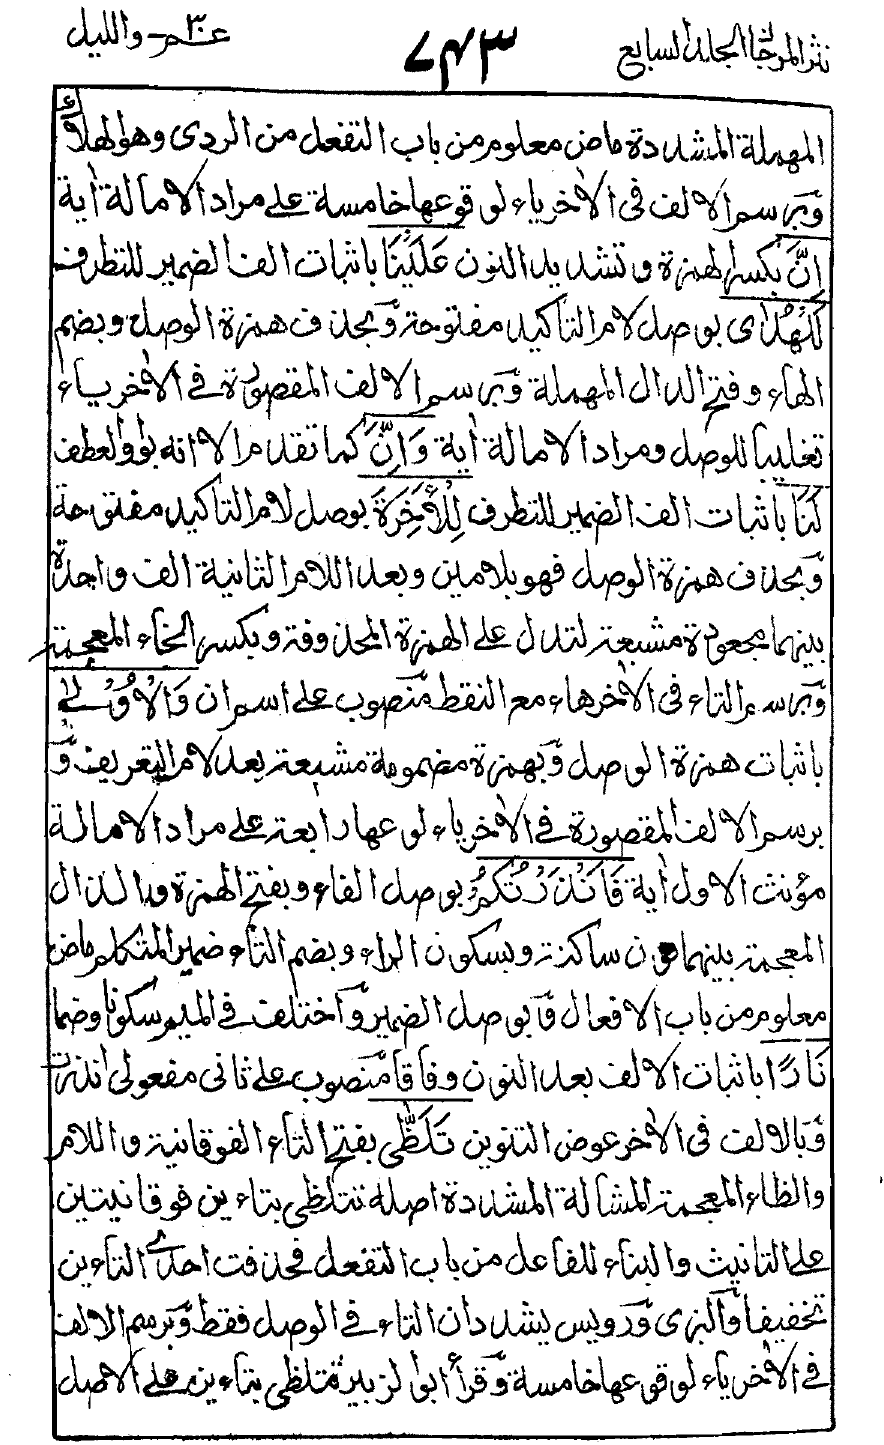 نثر المرجان المجلد السابع ٧٤٣ عم ٣٠ والليل
المهملة المشددة ماض معلوم من باب التفعل من الردى وهو الهلاك
وَبرسم الالف فى الاٰخر ياء لوقوعها خامسة على مراد الامالة اٰية
اِنَّ بكسر الهمزة وتشديد النون عَلَيْنَا باثبات الف الضمير للتطرف
لَلْهُدٰى بوصل لام التأكيد مفتوحة وَّبحذف همزة الوصل وبضم
الهاء وفتح الدال المهملة وَبرسم الالف المقصورة فى الاٰخر ياء
تغليبا للوصل ومراد الامالة اٰية وَاِنَّ كما تقدم الا انه بواو العطف
لَنَا باثبات الف الضمير للتطرف لَلْاٰخِرَةَ بوصل لام التأكيد مفتوحة
وَّبحذف همزة الوصل فهو بلامين وبعد اللام الثانية الف واحدة
بينهما مجعودة مشبعة لتدل على الهمزة المحذوفة وبكسر الخاء المعجمة
وَبرسم التاء فى الاٰخر هاء مع النقط مَنصوب على اسم ان وَالْاُوْلٰى
باثبات همزة الوصل وَبهمزة مضمومة مشبعة بعد لام التعريف وَّ
برسم الالف المقصورة فى الاٰخر ياء لوقوعها رابعة على مراد الامالة
مؤنث الاول اٰية فَاَنْذَرْتُكُمْ بوصل الفاء وبفتح الهمزة والذال
المعجمة بينهما نون ساكنة وبسكون الراء وبضم التاء ضمير المتكلم ماض
معلوم من باب الافعال وَبوصل الضمير وَاختلف فى الميم سكونا وضما
نَارًا باثبات الالف بعد النون وفاقا مَنصوب على ثانى مفعولى انذرت
وَبالالف فى الاٰخر عوض التنوين تَلَظّٰى بفتح التاء الفوقانية واللام
والظاء المعجمة المشالة المشددة اصله تتلظى بتاءين فوقانيتين
على التانيث والبناء للفاعل من باب التفعل فحذفت احدى التاءين
تخفيفا وَالبزى وَرويس يشددان التاء فى الوصل فقط وَبرسم الالف
فى الاٰخر ياء لوقوعها خامسة وَقرأ ابو الزبير تتلظى بتاءين على الاصل